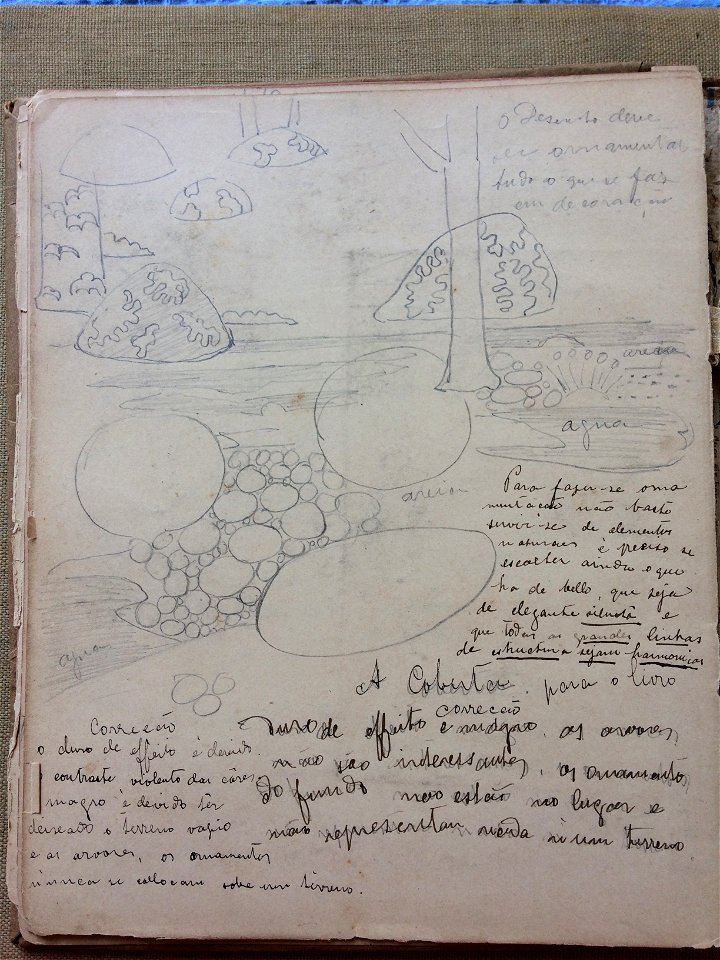 O Desenho deve
ser ornamentar
tudo o que se faz
em decoração
areia
agua
areia
Para fazer-se uma
mutação não basta
servir-se de elementos
naturaes é preciso se
escolher ainda o que
ha de bello, que seja
de elegante silueta e
que todas as grandes linhas
de estructura sejam harmonicas
agua
A Coberta para o livro
correcção
Duro de effeito e magro. as arvores
não são interessantes, os ornamentos
do fundo nao estão no lugar e
não representam nada n'um terreno
Correcção
o duro de effeito é devido
contraste violento das côres,
magro é devido ter
deixado o terreno vasio
e as arvores, os ornamentos
nunca se collocam sobe um terreno.